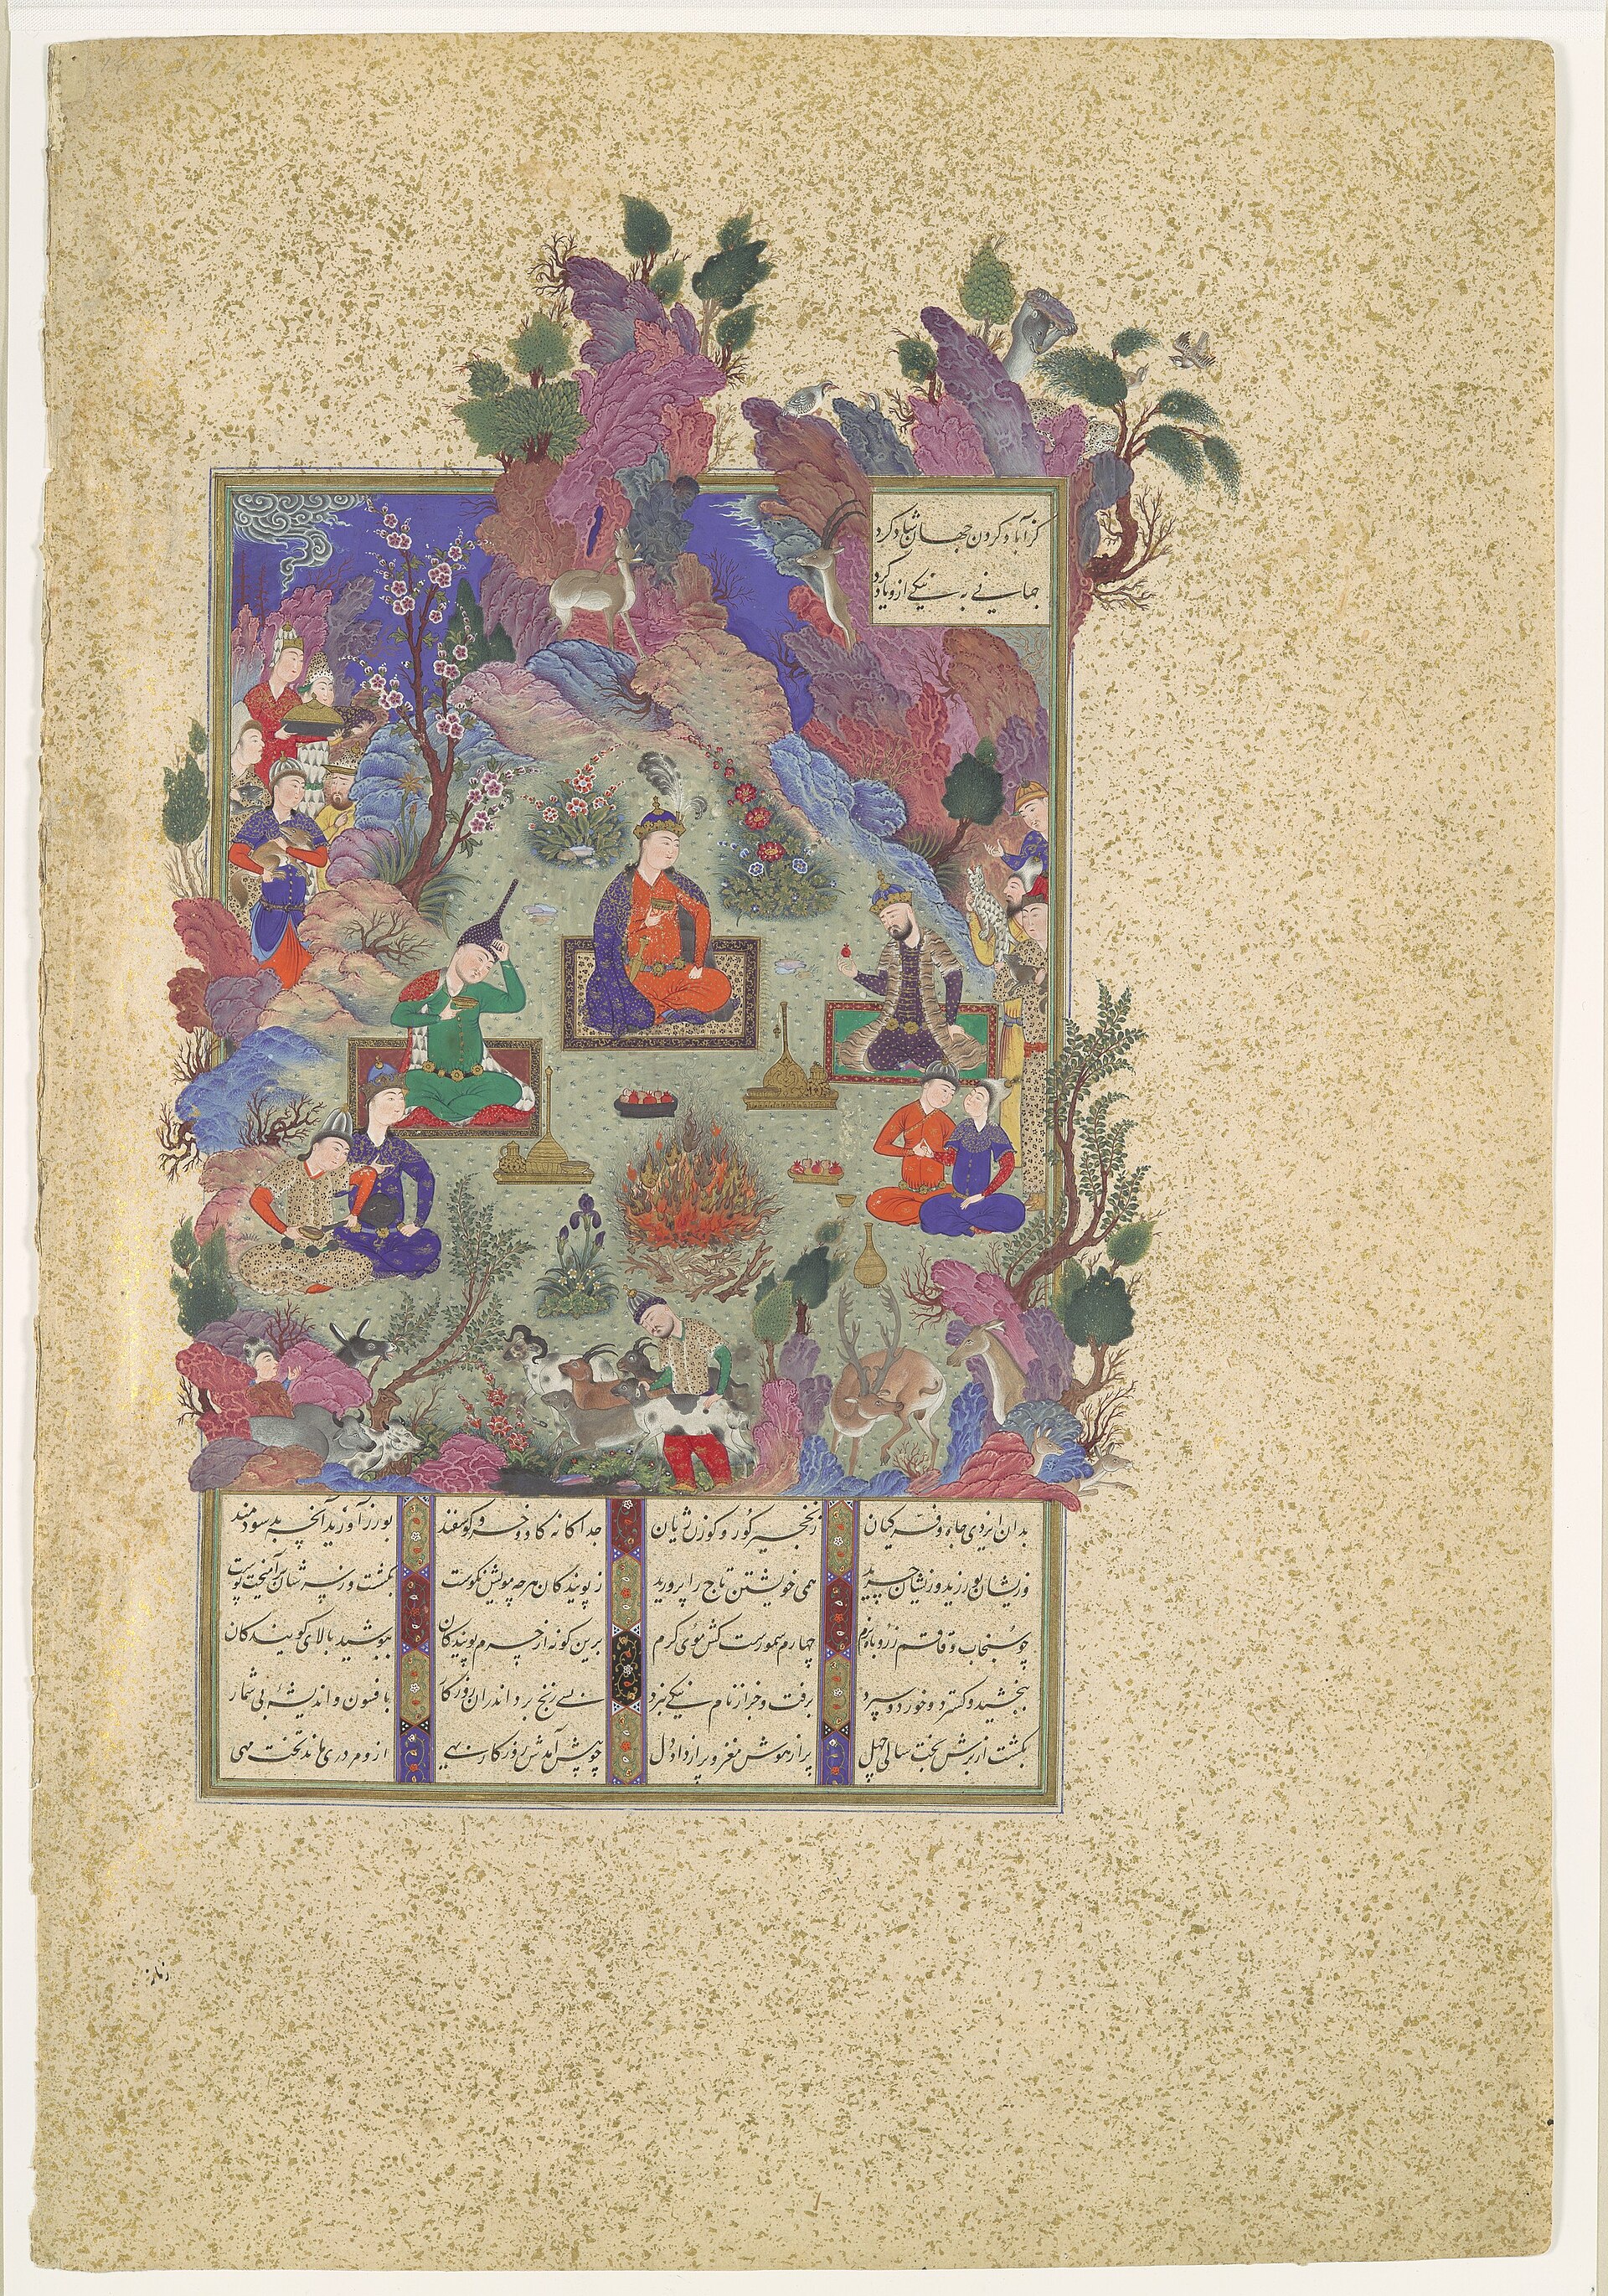 کز آباد کردن جهان شاد کرد
جهانی به نیکی ازو یاد کرد
بدان ایزدی جاه و فر کیان ز نخجیر کور و کوزن ژیان جدا کانه کاو و خر و کوسفند بورز آورید آنچه بد سودمند
وزیشان بورزید وزیشان چرید همی خویشتن تاج را پرورید ز پویندکان هرچه مویش نکوست بکشت و ز سرشان برآهیخت پوست
چو سنجاب و قاقم ز روباه نرم چهارم سمورست کش موی کرم برین کونه از چرم پویندکان بپوشید بالای کویندکان
ببخشید و کسترد و خورد و سپرد برفت و جز از نام نیکی نبرد بسی رنج برد اندران روزکار بافسون و اندیشهٔ بی شمار
بکشت از برش بخت سالی چهل پر از هوش مغز و پر از داد دل چو پیش آمدش روزکار بهی ازو مردری ماند تخت مهی